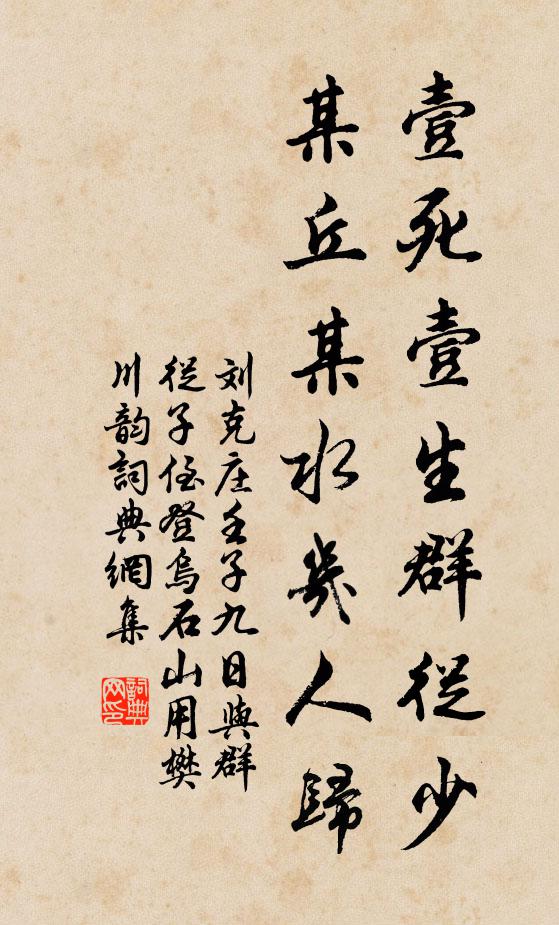 壹死壹生群從少
某丘某水幾人歸
刘克庄壬子九日與群
從子侄登烏石山用樊
川韵詞典網集
詞典网印